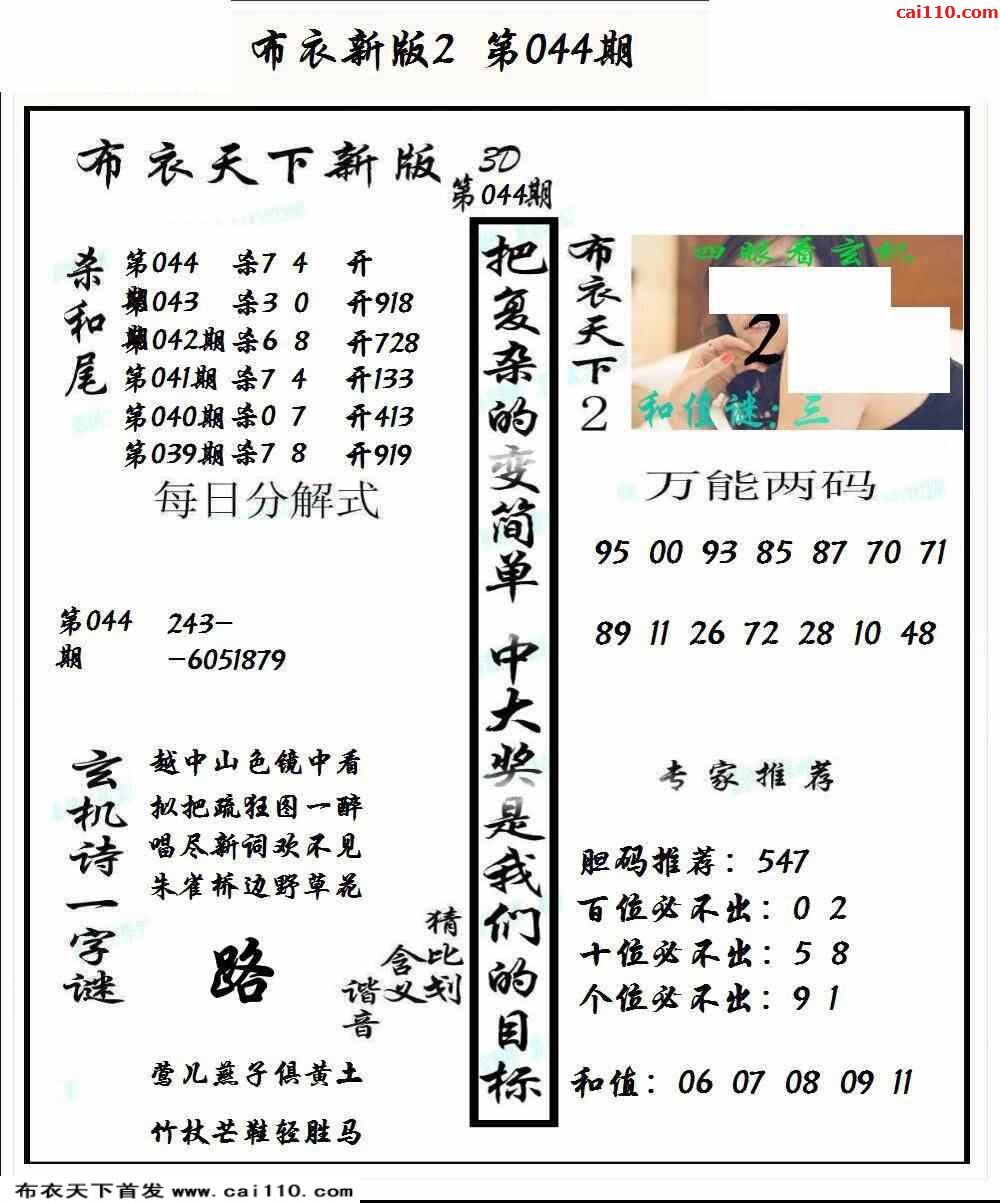 cai110.com
布衣新版2 第044期
布衣天下新版 3D
第044期
杀和尾
第044期 杀7 4 开
期043 杀3 0 开918
期042期 杀6 8 开728
第041期 杀7 4 开133
第040期 杀0 7 开413
第039期 杀7 8 开919
每日分解式
第044期
243-
-6051879
玄机诗一字谜
越中山色镜中看
拟把疏狂图一醉
唱尽新词欢不见
朱雀桥边野草花
路
猜比划
含义
谐音
莺儿燕子俱黄土
竹杖芒鞋轻胜马
把复杂的变简单 中大奖是我们的目标
布衣天下2
四眼看玄机
2
和值谜:三
万能两码
95 00 93 85 87 70 71
89 11 26 72 28 10 48
专家推荐
胆码推荐：547
百位必不出：0 2
十位必不出：5 8
个位必不出：9 1
和值：06 07 08 09 11
布衣天下首发 www.cai110.com